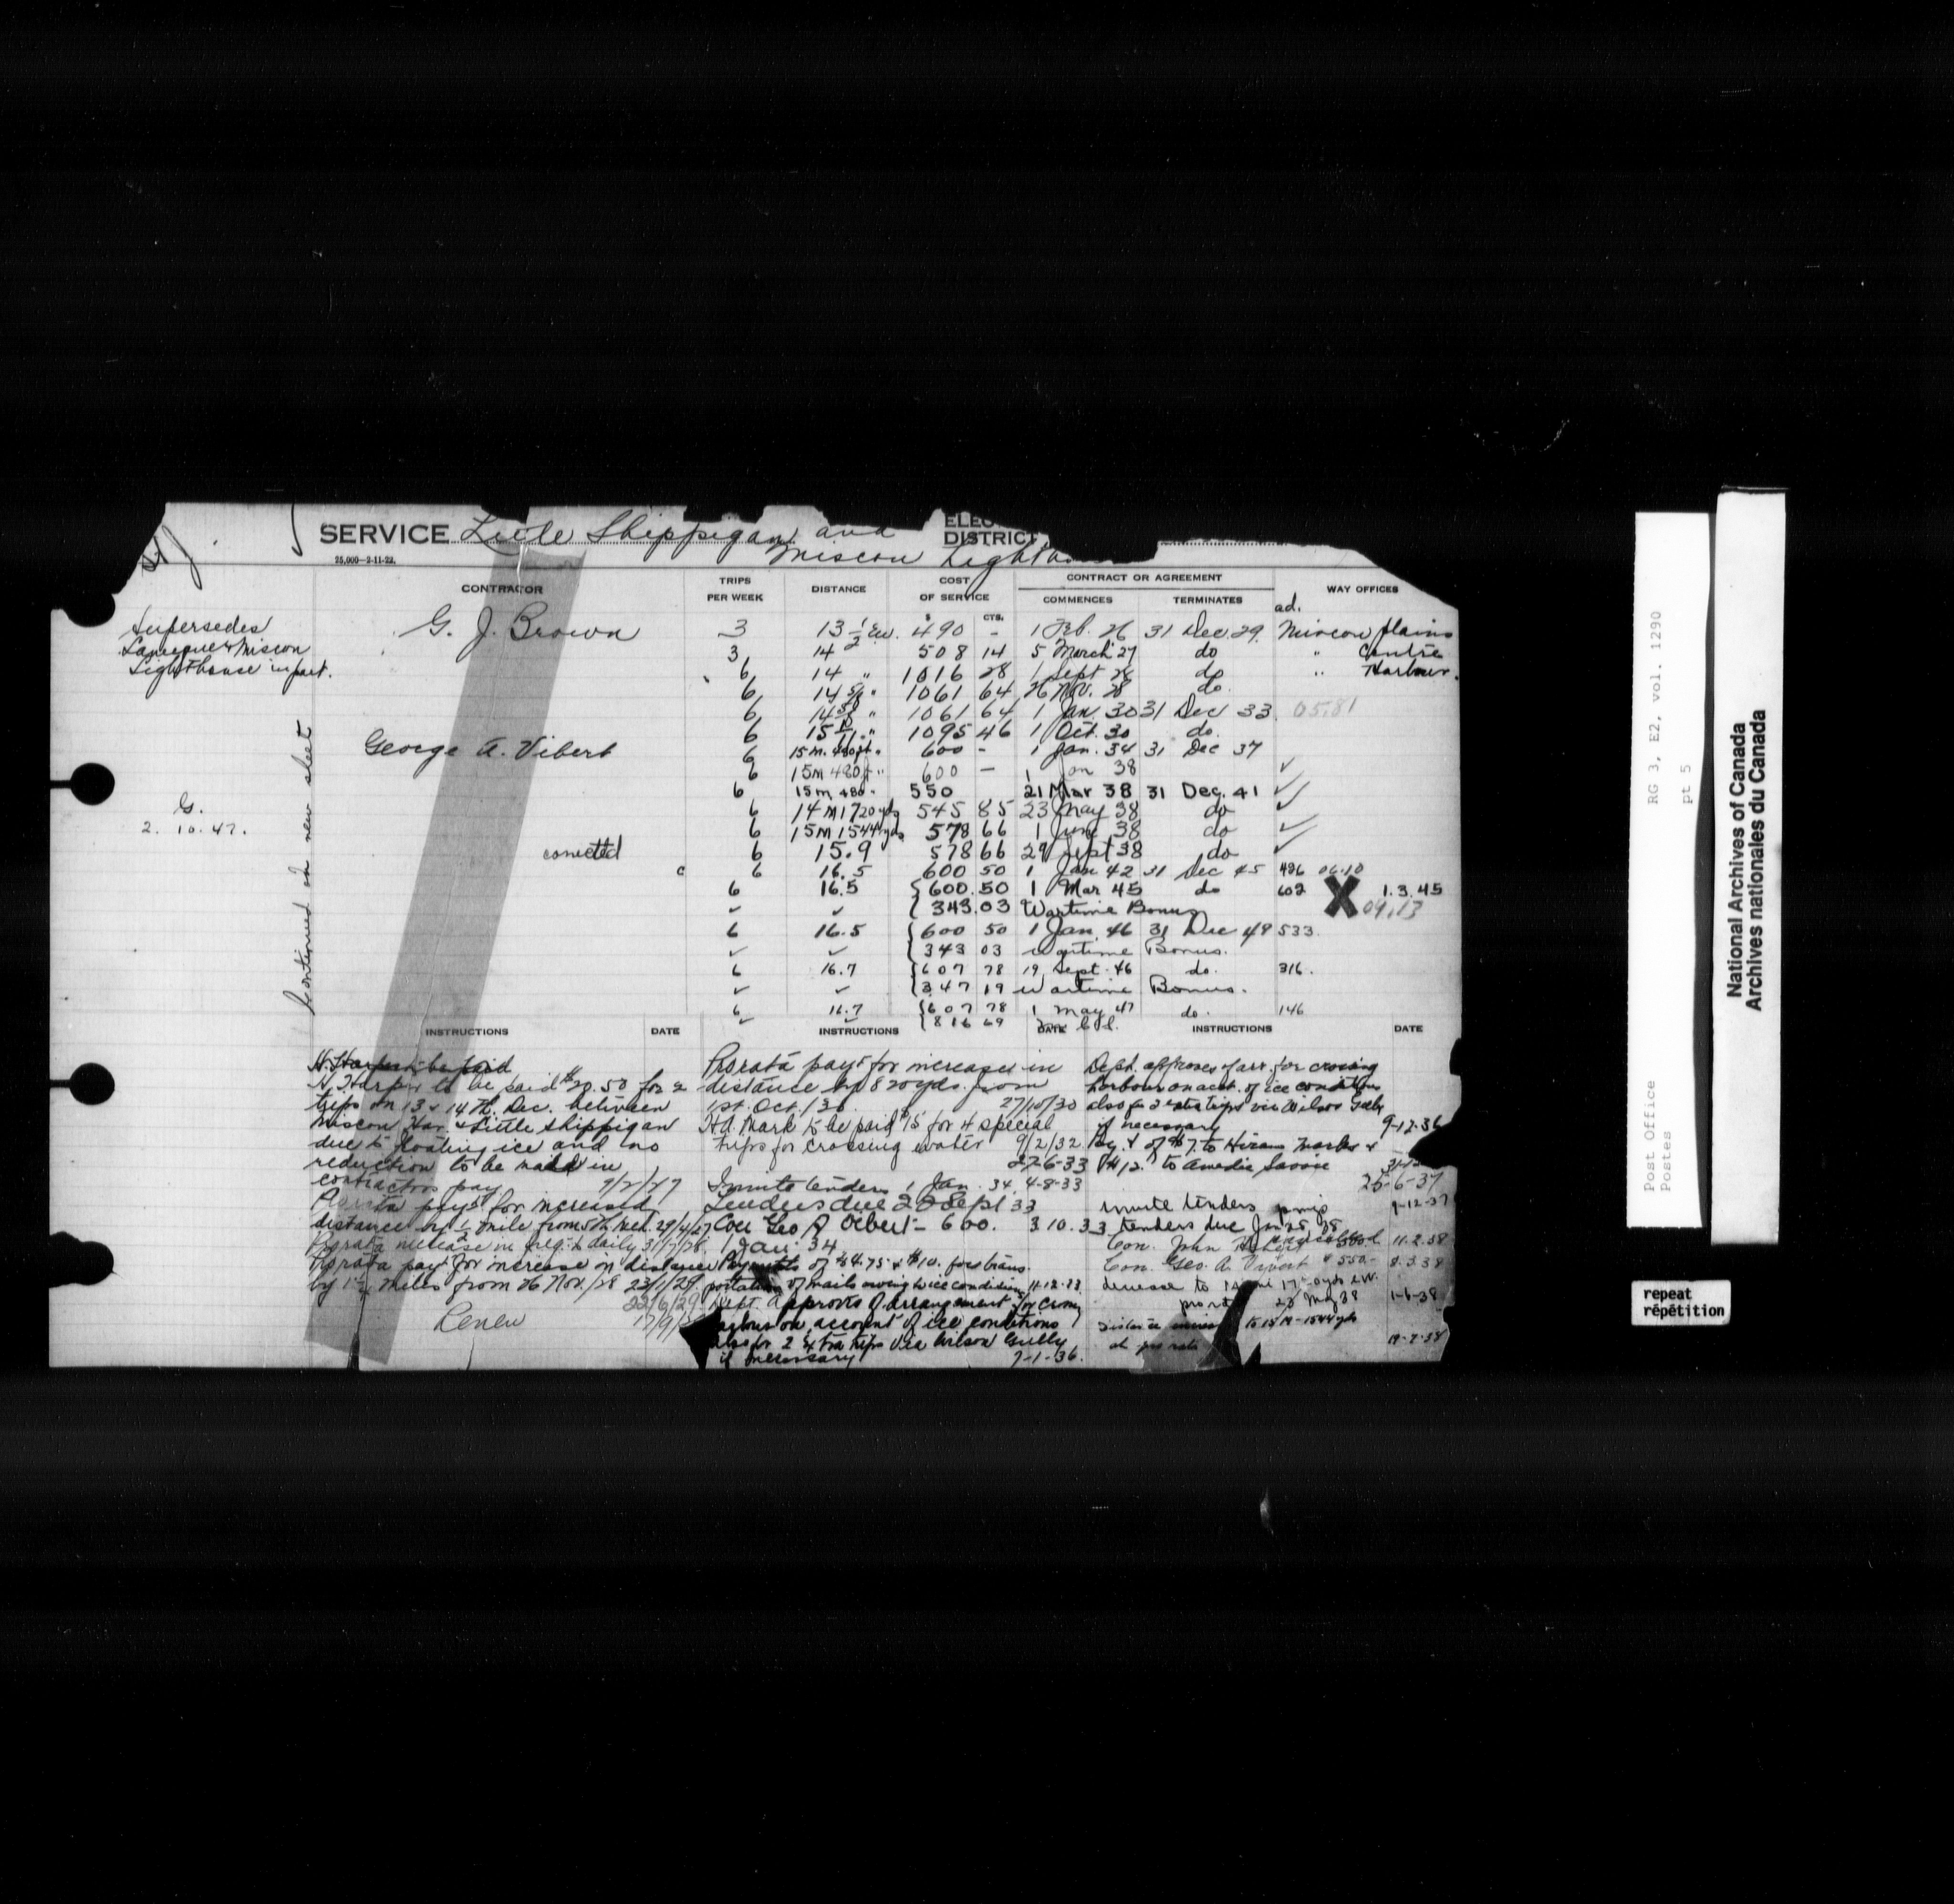 SERVICE Little Shippigan and
Miscou Lighth
ELEC
DISTRICT
25,000—2-11-22.
CONTRACTOR
TRIPS
PER WEEK
DISTANCE
COST
OF SERVICE
$ CTS.
CONTRACT OR AGREEMENT
COMMENCES TERMINATES
WAY OFFICES
Supersedes
Lameque & Miscou
Lighthouse in part.
G. J. Brown 3 13 1/2 Ew. 490 - 1 Feb. 26 31 Dec. 29. ad. Miscou Plains
3 14 508 14 5 March 27 do " Centre
6 14 " 1016 28 1 Sept 28 do " Harbour.
6 14 " 1061 64 26 Nov. 28 do.
6 14 " 1061 64 1 Jan. 30 31 Dec 33 05.81
6 15 " 1095 46 1 Oct. 30 do.
George A. Vibert 6 15 m. 480 ft. " 600 - 1 Jan. 34 31 Dec 37
6 15m 480 ft " 600 — 1 Jan 38 ✓
6 15m 480 " 550 21 Mar 38 31 Dec. 41 ✓
6 14 M 1720 yds 545 85 23 May 38 do ✓
6 15 M 1544 yds 578 66 1 June 38 do ✓
corrected 6 15.9 578 66 29 Sept 38 do ✓
c 6 16.5 600 50 1 Jan 42 31 Dec 45 436 06.10
6 16.5 600.50 1 Mar 45 do 602 X 1.3.45
✓ ✓ 343.03 Wartime Bonus 09.13
6 16.5 600 50 1 Jan. 46 31 Dec 49 533.
✓ ✓ 343 03 Wartime Bonus.
6 16.7 607 78 19 Sept. 46 do. 316.
✓ ✓ 347 19 Wartime Bonus.
6 16.7 607 78 1 May 47 do. 146
✓ ✓ 816 69
G.
2. 10. 47.
Continued on new sheet
INSTRUCTIONS DATE INSTRUCTIONS DATE INSTRUCTIONS DATE
H. Harper to be paid
H. Harper to be paid $20.50 for 2
trips on 13 & 14th. Dec. between
Miscou Har. & Little Shippigan
due to floating ice and no
reduction to be made in
contractors pay 9/2/27
Prorata payt for increased
distance by 1/2 mile from 5th Mch. 29/4/27
Prorata increase in freq. to daily 31/7/28.
Prorata payt for increase in distance
by miles from 26 Nov./28 23/1/29
22/6/29.
Renew 17/9/
Prorata payt for increase in
distance by 820 yds. from
1st. Oct./30. 27/10/30
Hd. Mark to be paid $15 for 4 special
trips for crossing water 9/2/32
27-6-33
Invite tenders 1 Jan. 34. 4-8-33
Tenders due 20 Sept 33
Con Geo A Vibert - 600. 3 10. 33
1 Jan 34
Payments of $4.75 & $10. for trans-
portation of mails owing to ice conditions 11-12-33
Dept. approves of arrangement for crossg
harbour on account of ice conditions
also for 2 extra trips via Wilson Gully
if necessary 7-1-36.
Dept. approves of arr. for crossing
harbour on acct. of ice conditions
also for 2 extra trips via Wilson Gully
if necessary 9-12-36
Pay't of $7. to Hiram Marks &
$12. to Amedie Savoie
26-6-37
Invite tenders 9-12-37
tenders due Jan 25 38
Con. John 11-2-38
Con. Geo. A. Vibert $550.- 8-3-38
decrease to
pro rata 23 May 38 1-6-38
Distance to 15 M-1544 yds
at pro rata 19-7-38
Post Office RG 3, E2, vol. 1290
Postes pt 5
National Archives of Canada
Archives nationales du Canada
repeat
répétition